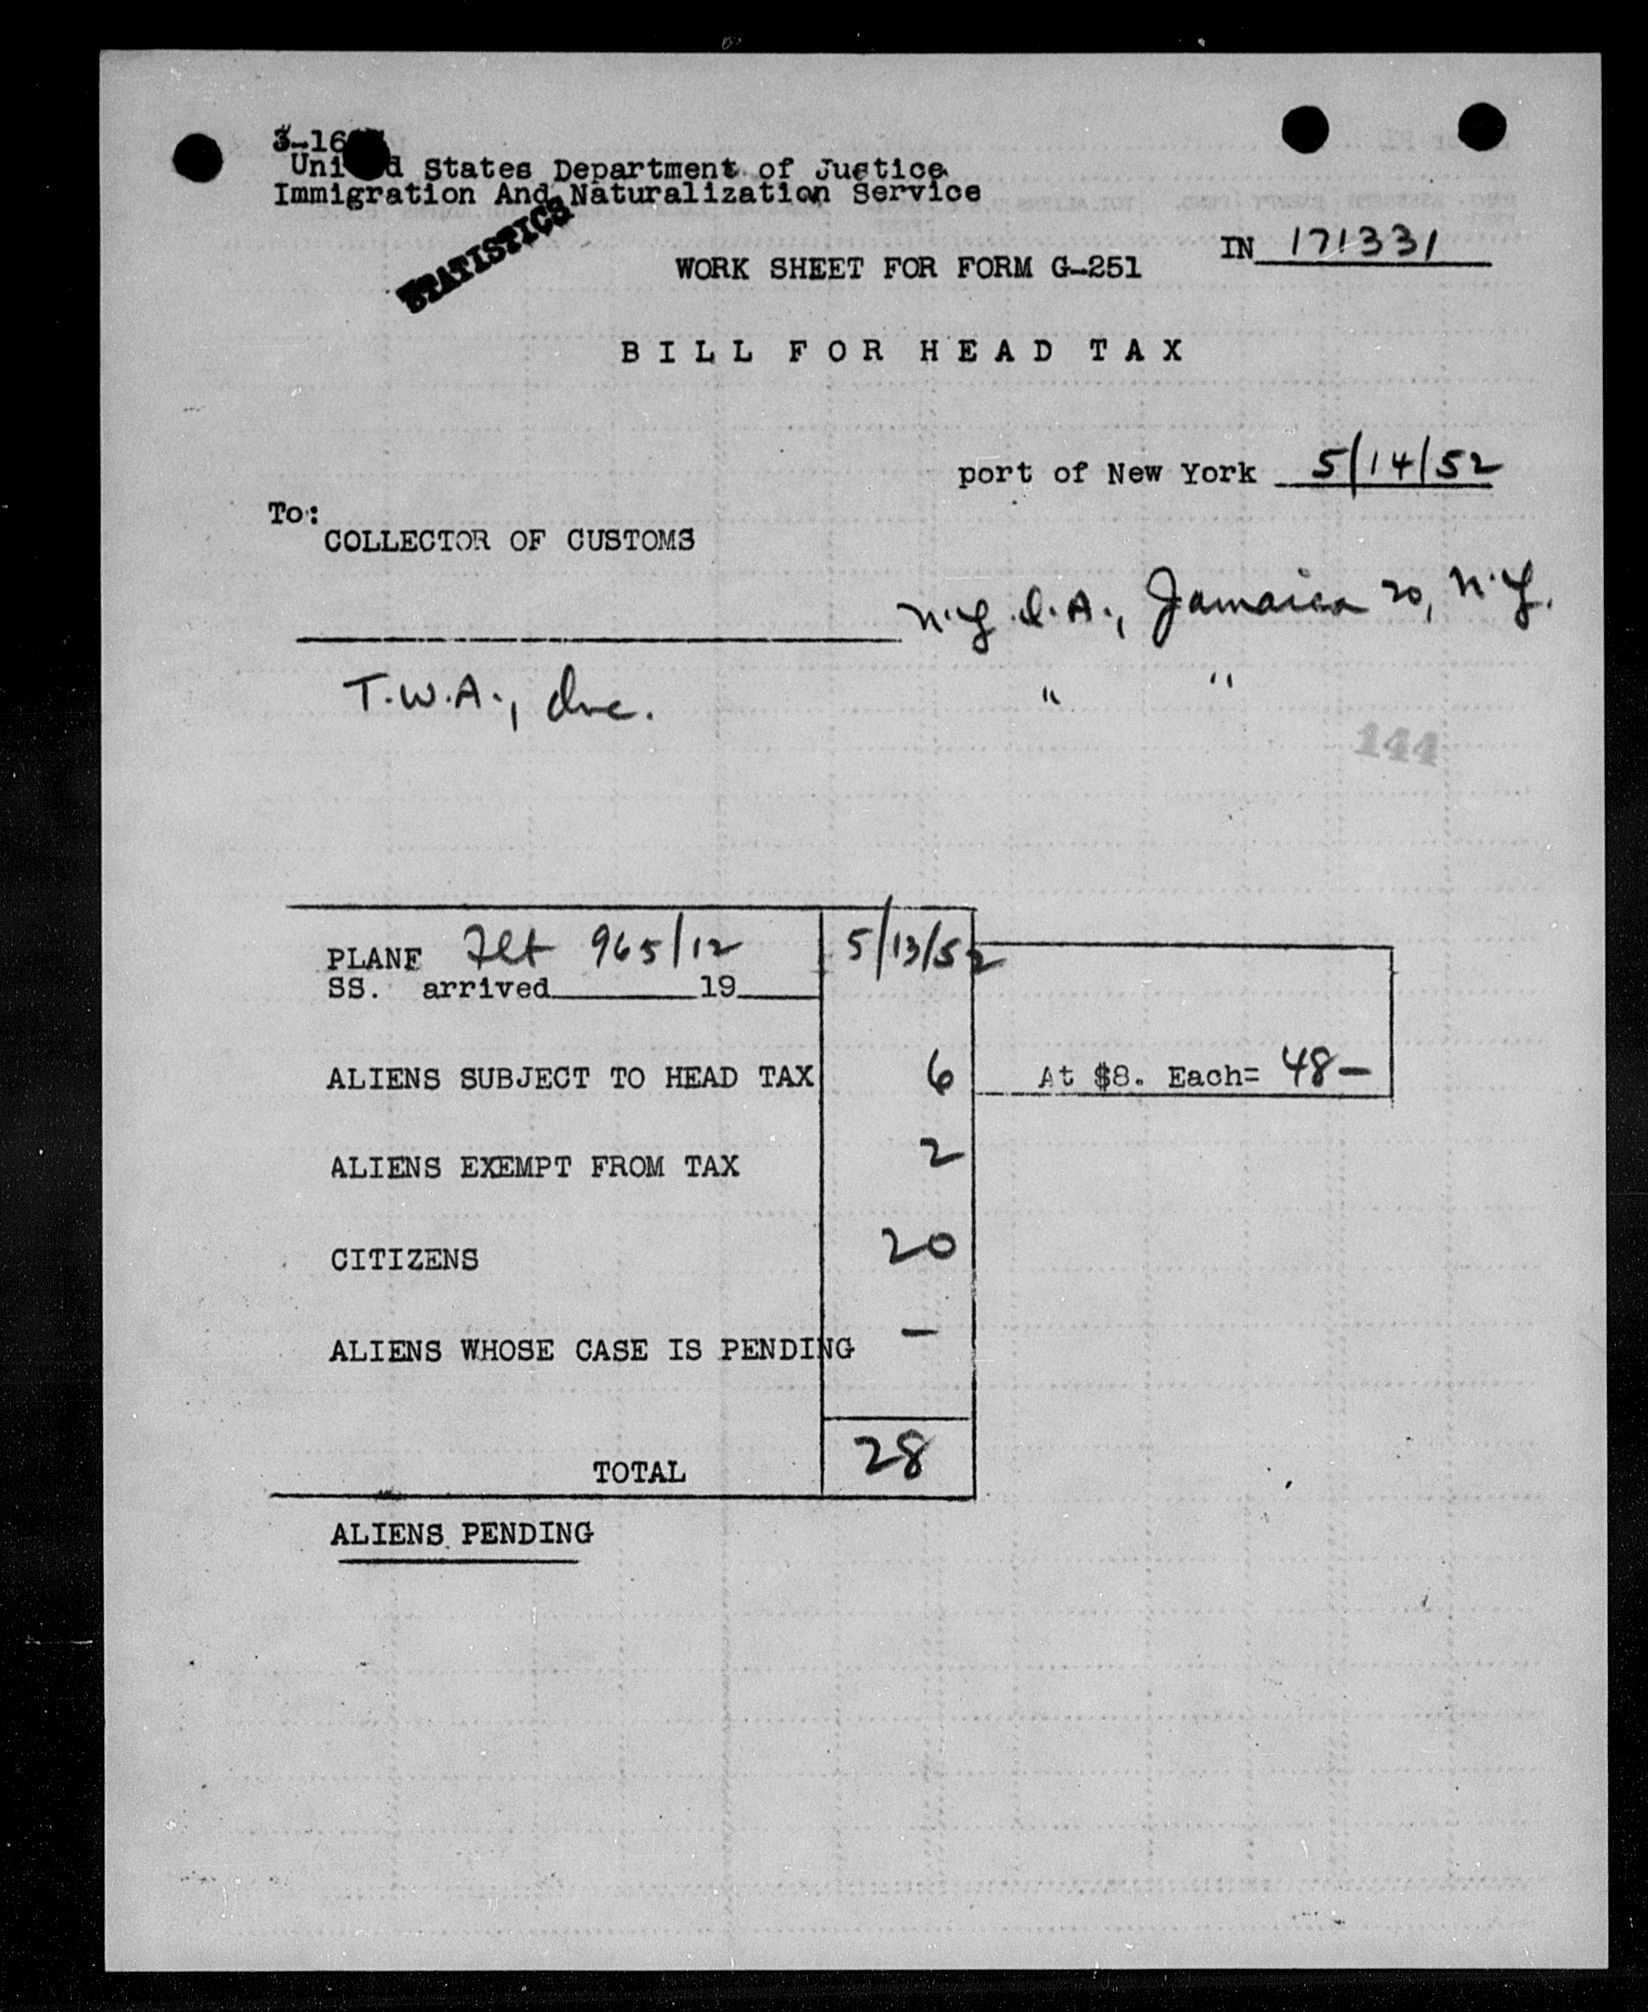 3-16
United States Department of Justice
Immigration And Naturalization Service
STATISTICS
IN 171331
WORK SHEET FOR FORM G-251
BILL FOR HEAD TAX
port of New York 5/14/52
To:
COLLECTOR OF CUSTOMS
N.Y.I.A., Jamaica 20, N.Y.
T.W.A., Inc. " "
144
PLANE Flt 965/12 5/13/52
SS. arrived 19
ALIENS SUBJECT TO HEAD TAX 6 At $8. Each= 48-
ALIENS EXEMPT FROM TAX 2
CITIZENS 20
ALIENS WHOSE CASE IS PENDING -
TOTAL 28
ALIENS PENDING